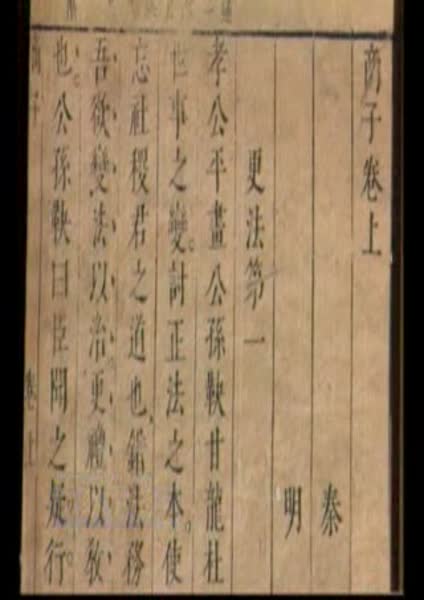 商子卷上
秦
明
更法第一
孝公平畫公孫鞅甘龍杜
世事之變討正法之本使
忘社稷君之道也錯法務
吾欲變法以治更禮以教
也公孫鞅曰臣聞之疑行
商子 卷上